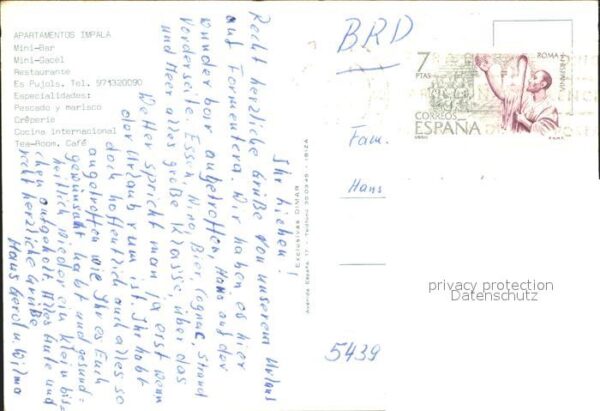 APARTAMENTOS IMPALA
Mini-Bar
Mini-Gacèl
Restaurante
Es Pujols. Tel. 971320090
Especialidades:
Pescado y marisco
Crêperie
Cocina internacional
Tea-Room. Café
Ihr Lieben!
Recht herzliche Grüße von unserem Urlaub
auf Formentera. Wir haben es hier
wunderbar angetroffen, Haus auf der
Vorderseite. Essen, Wino, Bier, Cognac, Strand
und Meer alles große Klasse, über das
Wetter spricht man ja erst wenn
der Urlaub rum ist. Ihr habt
doch hoffentlich auch alles so
angetroffen wie Ihr es Euch
gewünscht habt und gesund-
heitlich wieder ein klein bis-
chen aufgeholt. Alles Gute und
recht herzliche Grüße
Hans Gerd u. Wilma
Exclusivas DIMAR
Avenida España, 17 - Teléfono 30.09.45 - IBIZA
BRD
7
PTAS
ROMA
HISPANIA
CORREOS
ESPAÑA
Fam.
Hans
5439
privacy protection
Datenschutz